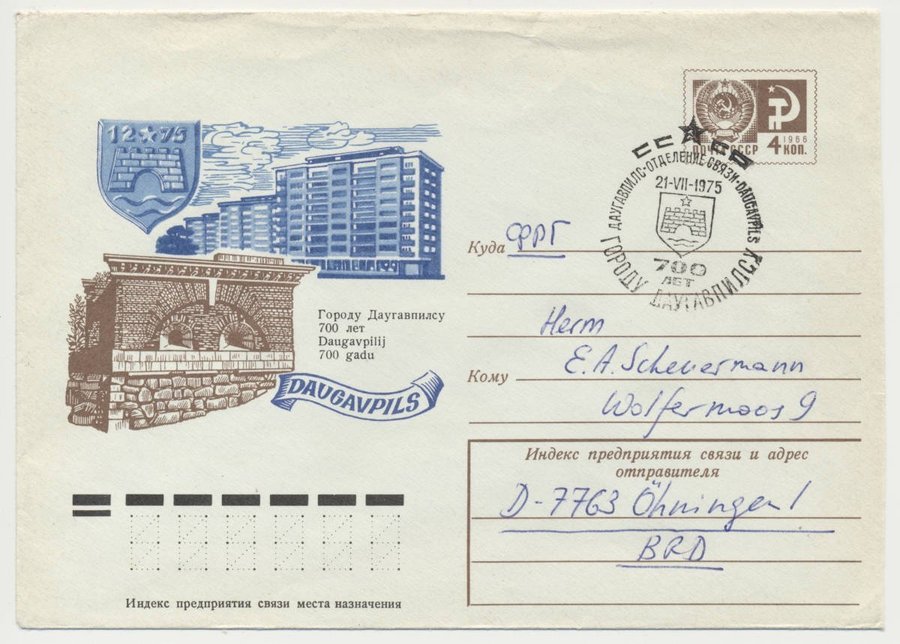 12★75
Городу Даугавпилсу
700 лет
Daugavpilij
700 gadu
DAUGAVPILS
1966
ПОЧТА СССР
4 КОП.
СССР
ДАУГАВПИЛС-ОТДЕЛЕНИЕ СВЯЗИ-DAUGAVPILS
21-VII-1975
700
ЛЕТ
ГОРОДУ ДАУГАВПИЛСУ
Куда ФРГ
Herrn
E. A. Scheuermann
Кому
Wolfermoos 9
Индекс предприятия связи и адрес
отправителя
D-7763 Öhningen 1
BRD
Индекс предприятия связи места назначения